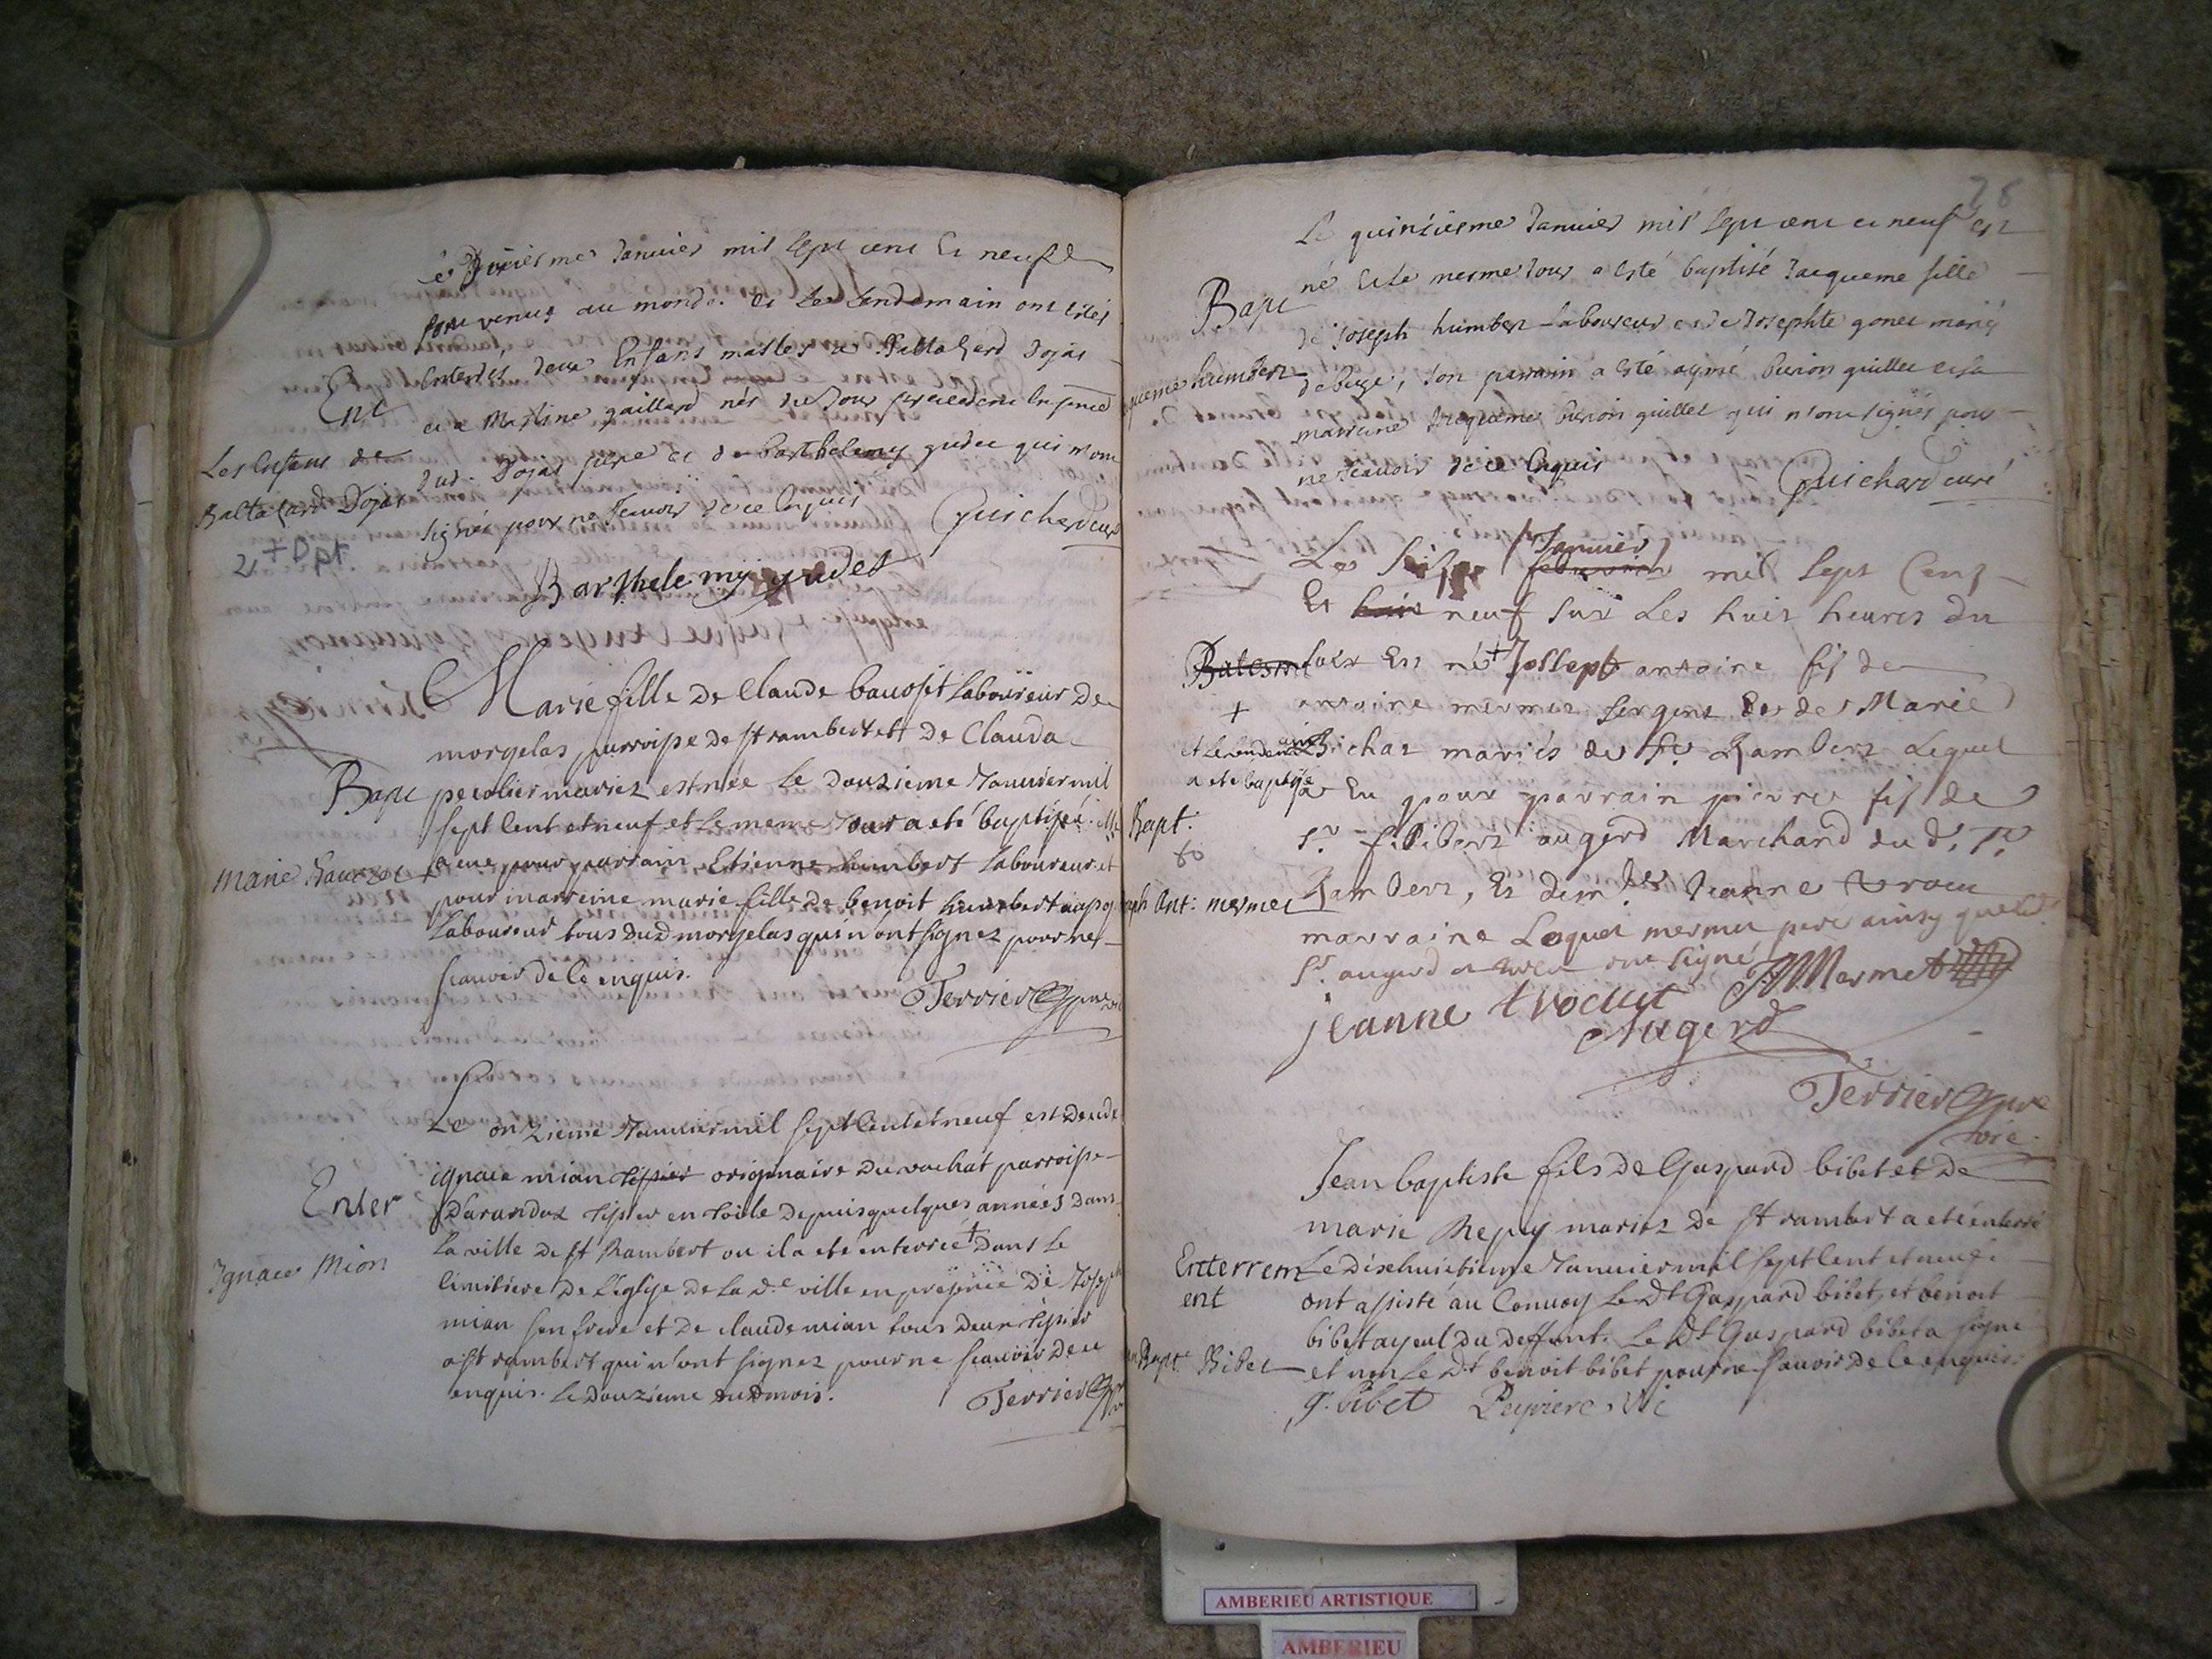 mes Janvier mil sept cent et neuf
venus au monde et le lendemain ont estés
enterrés, deux enfans masles a Baltazard Dojas
Ent
et a Martine gaillard nés du jour precedent
Les enfans de
Baltazard Dojas
dud. Dojas pere et de barthelemy gudet qui n'ont
signés pour ne scavoir de ce enquis
Guichard curé
2 + Dpt
Barthelemy gudet
Marie fille de Claude baucset laboureur de
morgelas parroisse de st rambert et de Clauda
Bapt
peculier mariez est née le douzieme Janvier mil
sept cent et neuf et le meme jour a eté baptisée
Marie
a eue pour parrain Etienne humbert laboureur et
pour marreine marie fille de benoit humbert
laboureur tous dud morgelas qui n'ont signez pour ne
scavoir de ce enquis.
Terrier
Le onzieme Janvier mil sept cent et neuf est decede
ignace mian tissier originaire du vachat parroisse
Enter
d'arandas tissier en toile depuis quelques années dans
la ville de st Rambert ou il a eté enterré + dans le
Ignace Mion
cimitiere de l'église de la de ville en presence de Joseph
mian son frere et de claude mian tous deux tissier
a st rambert qui n'ont signez pour ne scavoir de ce
enquis. le douzieme dud mois.
Terrier
28
Le quinsiesme Janvier mil sept cent et neuf est
né et le mesme jour a esté baptisé Jacqueme fille
Bapt
de Joseph humbert laboureur et de Josephte gonet mariés
humbert
de buge, son parrain a esté aymé guillet et sa
marraine Jacqueme guillet qui n'ont signés pour
ne scavoir de ce enquis
Guichard curé
Janvier
Le seize febvrier mil sept cent
Et huit neuf sur les huit heures du
Batesme
soir est né + Josseph antoine fis de
+
antoine mermet sergent et de Marie
et le lendemain
a ete baptisé
Bichat mariés de St Rambert lequel
a eu pour parrain pierre fis de
Bapt.
Sr filibert augerd Marchand du d. St
Rambert, et dem.le Jeanne trocu
Ant: mermet
marraine Lequel mermet pere ainsy que led.
Sr augerd et trocu ont signé
Mermet
jeanne trocut
Augerd
Terrier
vic.
Jean baptiste fils de Gaspard bibet et de
marie Repy mariez de st rambert a eté enterré
Enterrem
ent
Le dixhuictieme Janvier mil sept cent et neuf
ont assisté au Convoy Le dt Gaspard bibet, et benoit
bibet ayeul du deffunt. Le dt Gaspard bibet a signe
Bapt Bibet
et non le dt benoit bibet pour ne scavoir de ce enquis.
g. bibet
AMBERIEU ARTISTIQUE
AMBERIEU